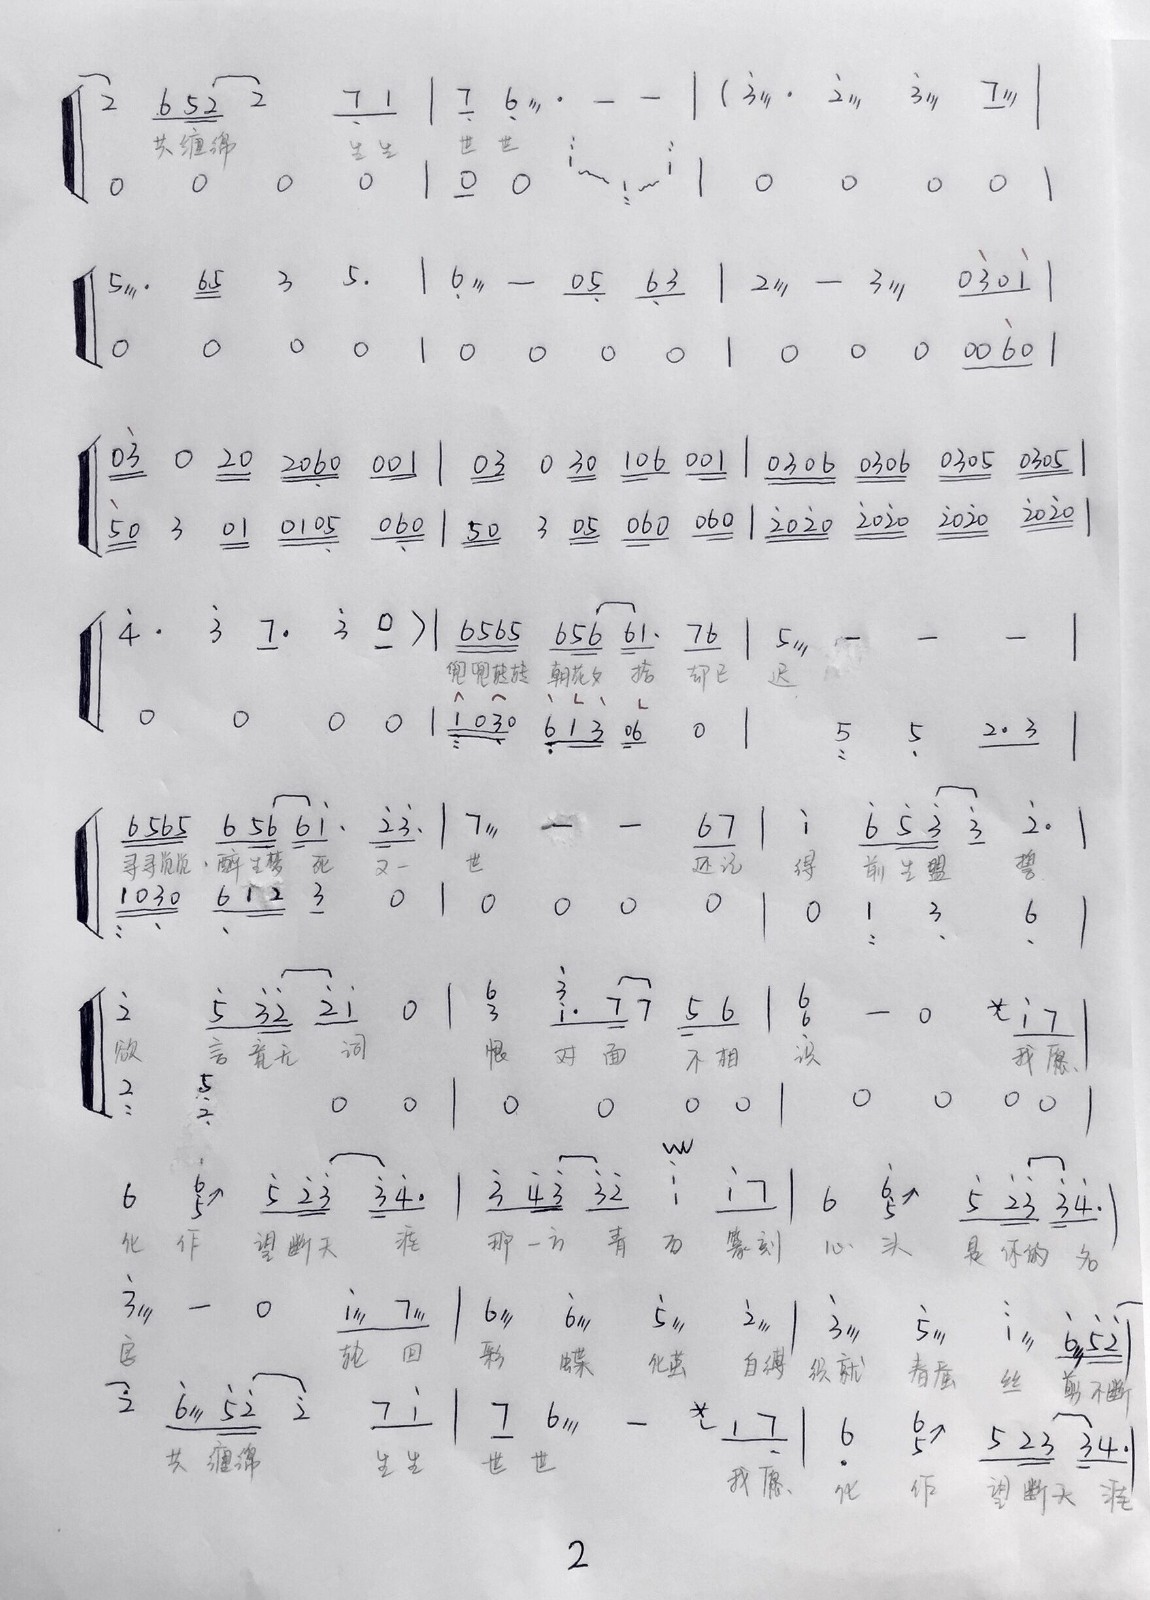 2 6 5 2 2 7 1 | 7 6 · — — | ( 3 · 2 3 7 |
共缠绵 生生 世世
0 0 0 0 | 0 0 i ~ 1 ~ i | 0 0 0 0 |
5 · 65 3 5 · | 6 — 05 63 | 2 — 3 0301 |
0 0 0 0 | 0 0 0 0 | 0 0 0 0060 |
03 0 20 2060 001 | 03 0 30 106 001 | 0306 0306 0305 0305 |
50 3 01 0105 060 | 50 3 05 060 060 | 2020 2020 2020 2020 |
4 · 3 7 · 3 0 ) | 6565 656 61 · 76 | 5 — — — |
兜兜转转 朝花夕 拾 却已 迟
0 0 0 0 | 1030 613 06 0 | 5 5 2·3 |
6565 656 61 · 23 · | 7 — — 67 | i 6 5 3 3 2 · |
寻寻觅觅 · 醉生梦 死 又一 世 还记 得 前生盟 誓
1030 612 3 0 | 0 0 0 0 | 0 1 3 6 |
2 5 32 21 0 | 6 3 3 1 · 7 7 5 6 | 6 6 — 0 i 7 |
欲 言竟无 词 恨 对面 不相 识 我愿、
2 5 2 0 0 | 0 0 0 0 | 0 0 0 0 |
6 6 5 ↗ 5 23 34 · | 3 43 32 i i 7 | 6 6 5 ↗ 5 23 34 · |
化 作 望断天 涯 那一方 青石 篆刻 心 头 是你的 名
3 — 0 i 7 | 6 6 5 2 | 3 5 i 6 52 |
字 轮回 彩 蝶 化茧 自缚 织就 春蚕 丝 剪不断
2 6 52 2 7 i | 7 6 — 1 7 | 6 6 5 ↗ 5 23 34 · |
共缠绵 生生 世世 我愿、 化 作 望断天 涯
2